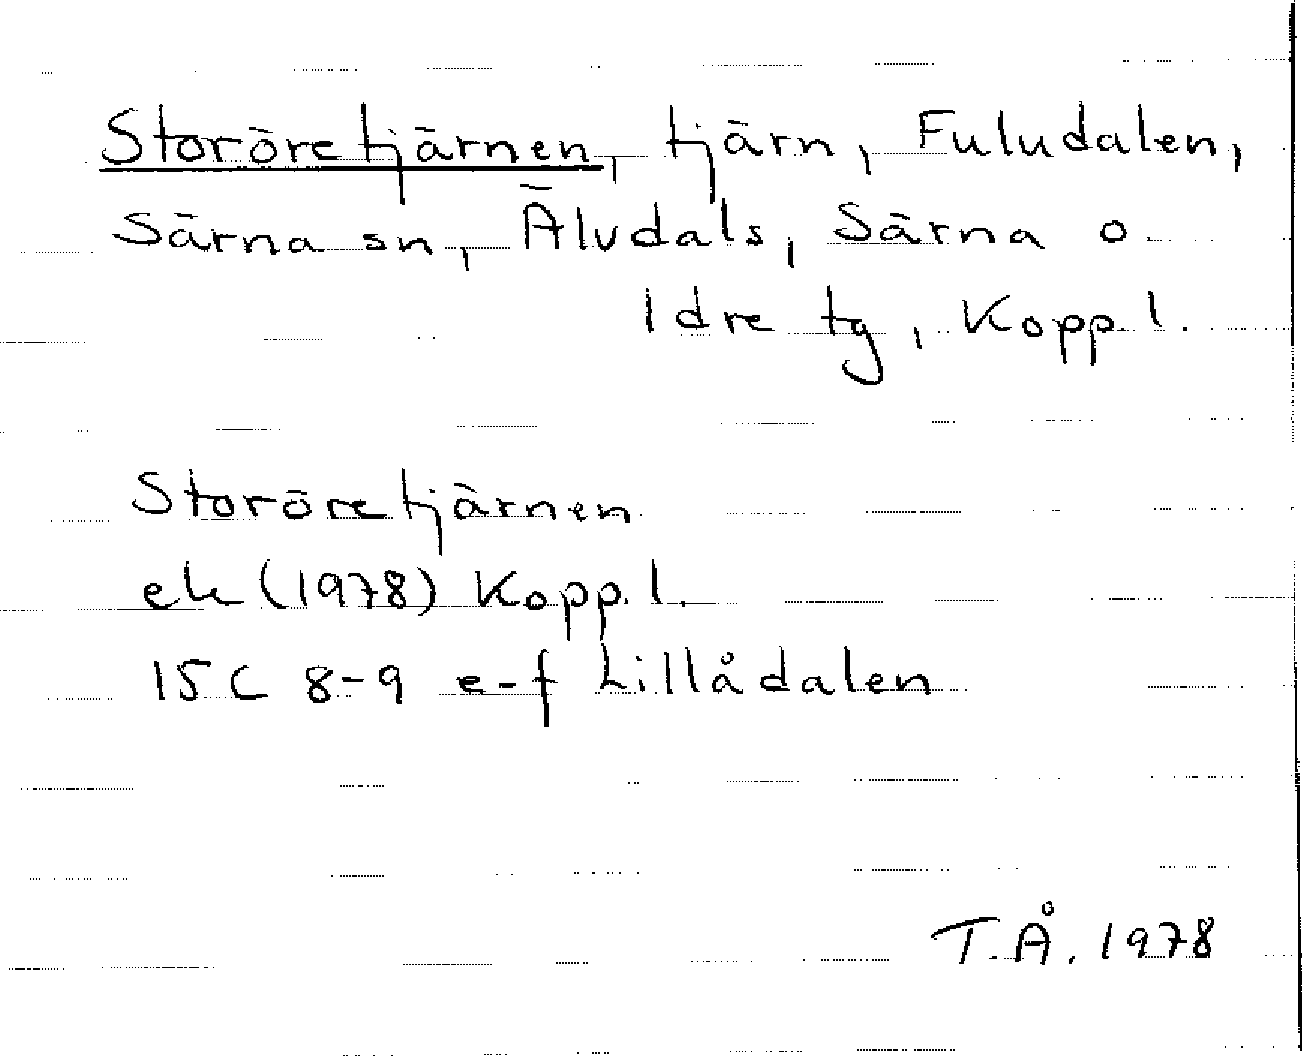 Storöretjärnen, tjärn, Fuludalen,
Särna sn, Älvdals, Särna o
Idre tg, Kopp. l.
Storöretjärnen
ek (1978) Kopp. l.
15C 8-9 e-f Lillådalen
T.Å. 1978